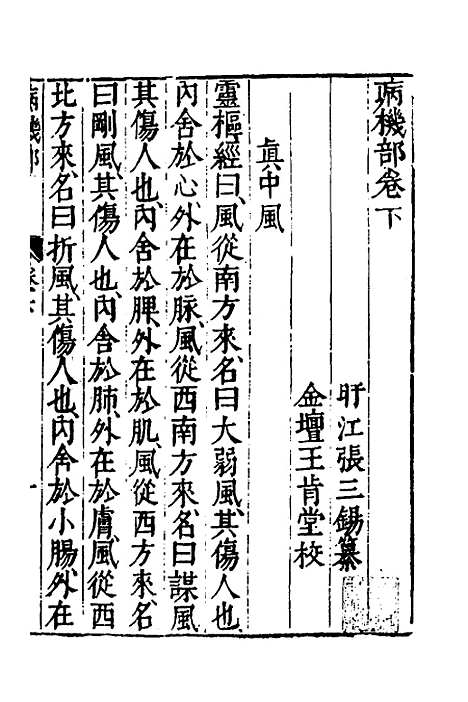 病機部卷下
盱江張三錫纂
金壇王肯堂校
眞中風
靈樞經曰風從南方來名曰大弱風其傷人也
內舍於心外在於脉風從西南方來名曰謀風
其傷人也內舍於脾外在於肌風從西方來名
曰剛風其傷人也內舍於肺外在於膚風從西
北方來名曰折風其傷人也內舍於小腸外在
病機部
一